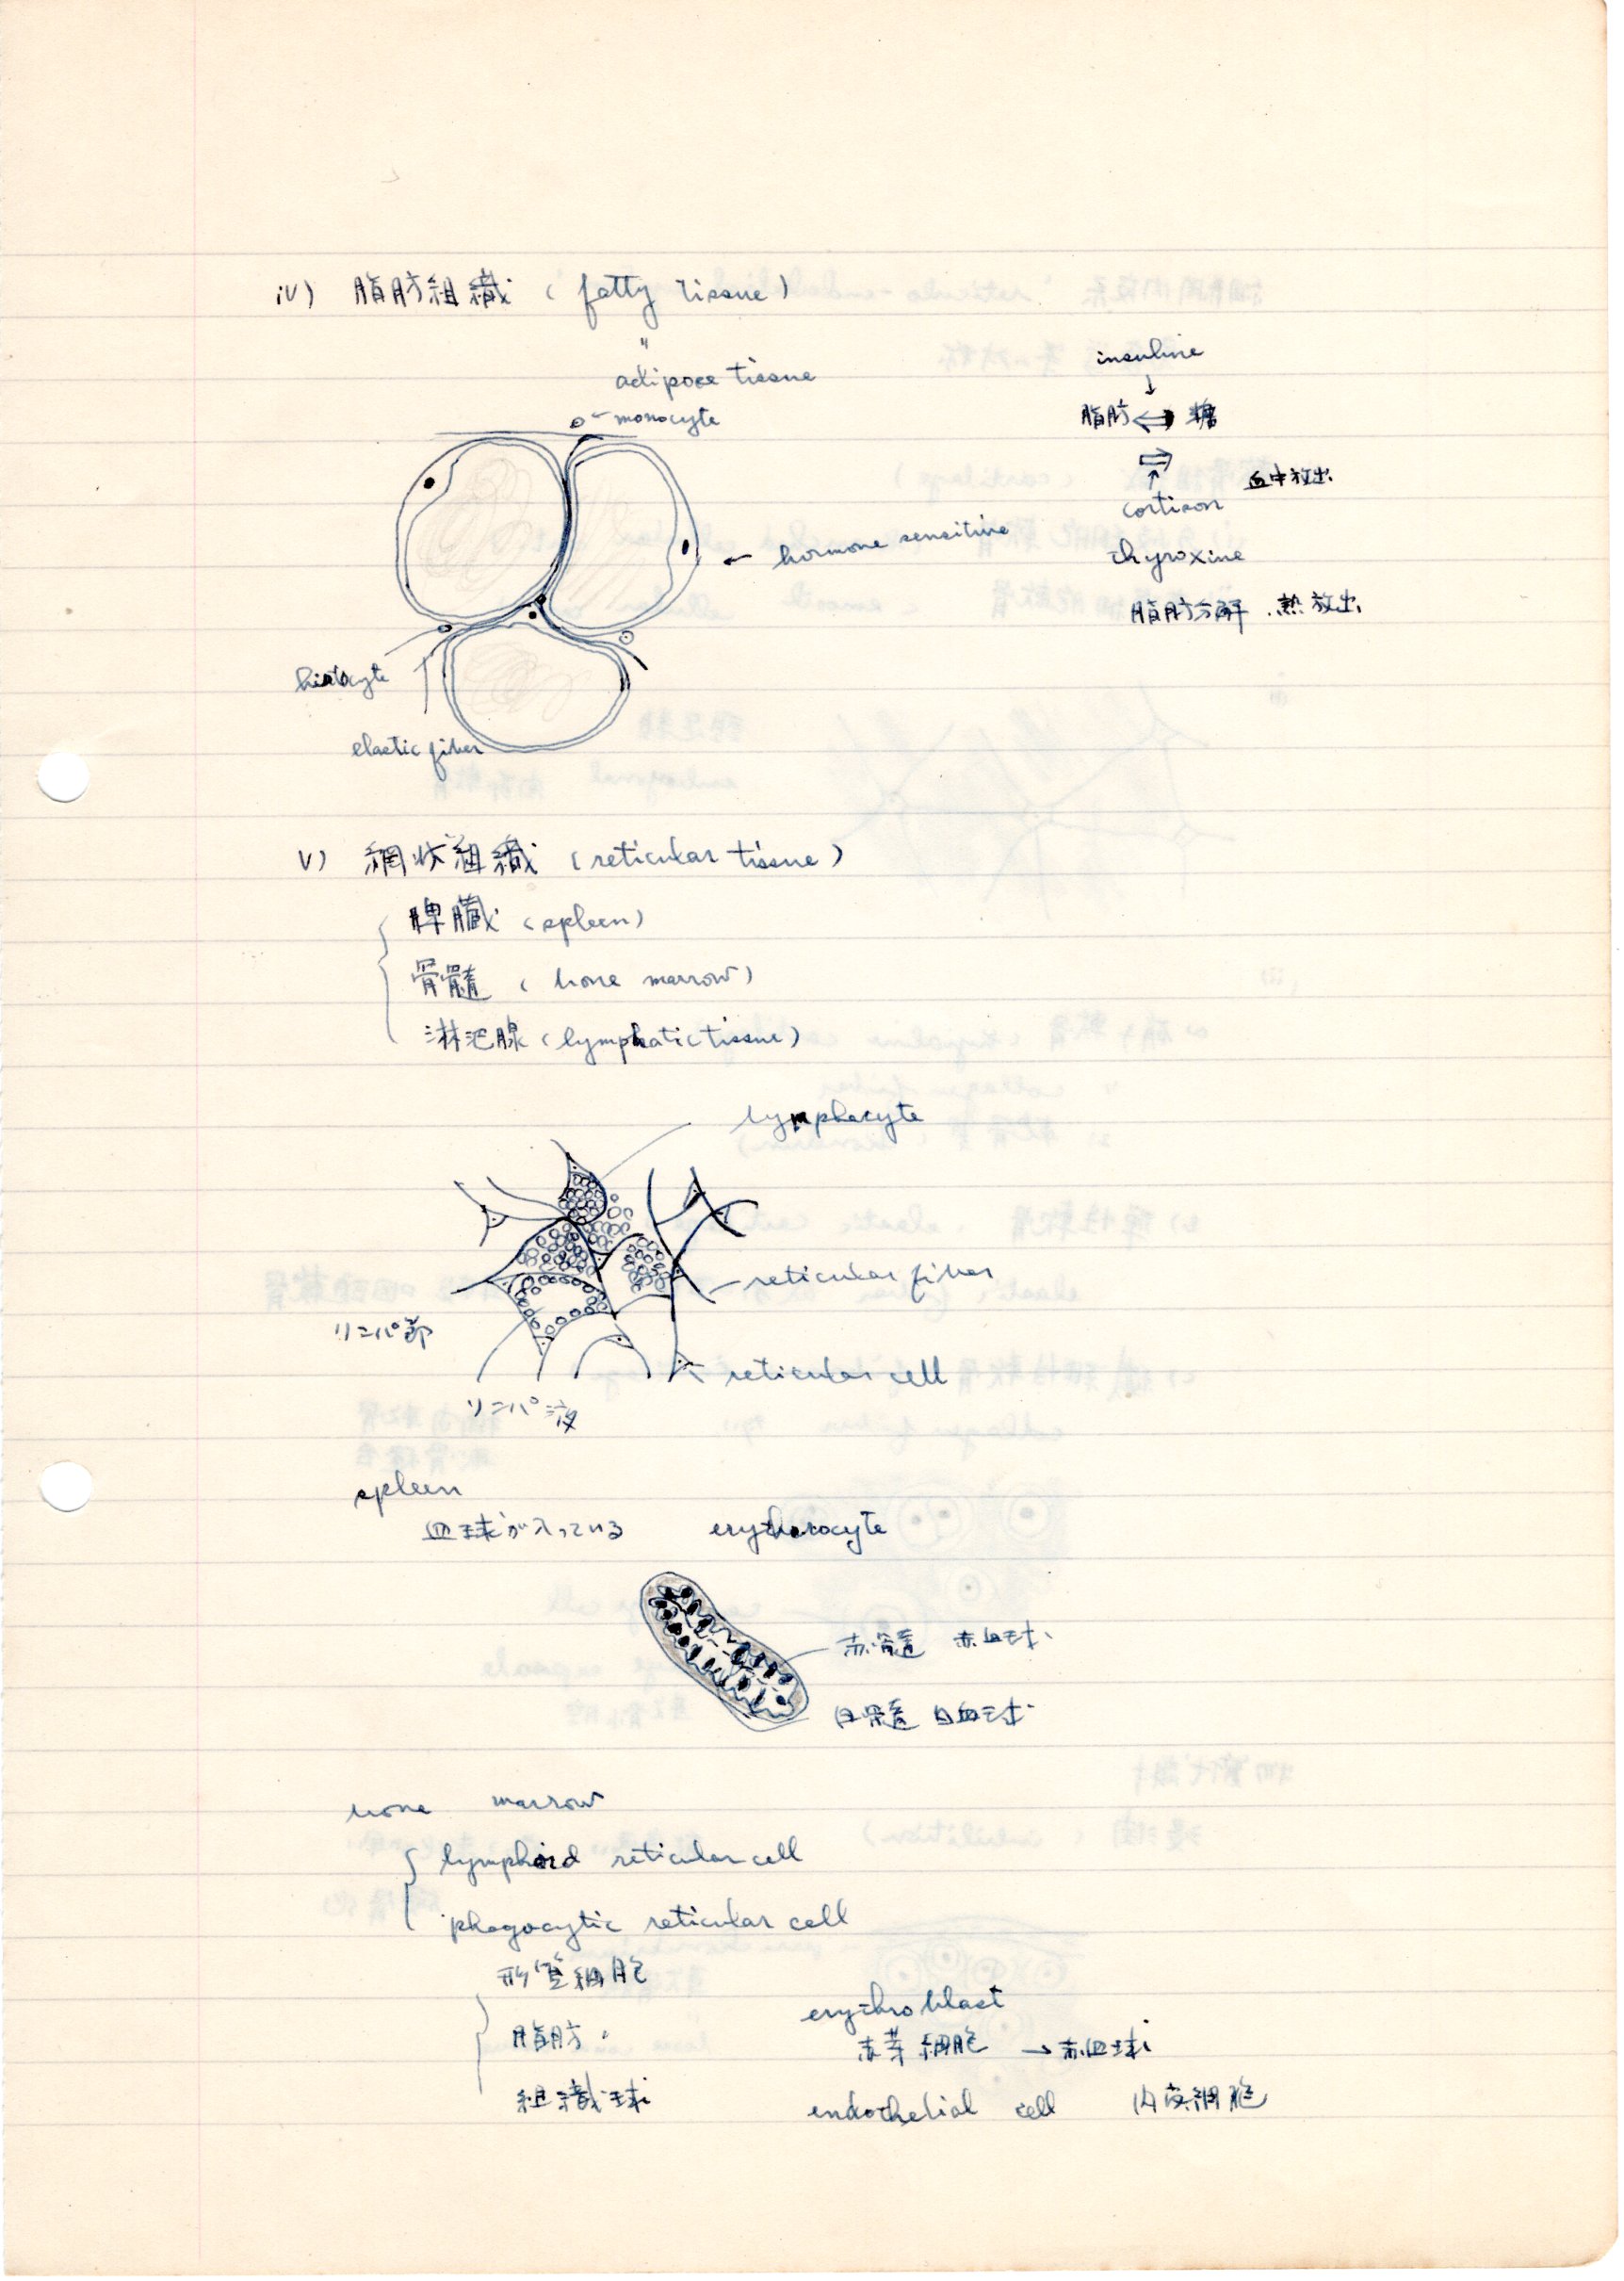 iv) 脂肪組織 (fatty tissue)
〃
adipose tissue
monocyte
insuline
↓
脂肪 ⇔ 糖
⇒
↑
cortison 血中放出
← hormone sensitive
thyroxine
脂肪分解 熱放出
histocyte
elastic fiber
v) 網状組織 (reticular tissue)
脾臓 (spleen)
骨髄 (bone marrow)
淋巴腺 (lymphatic tissue)
lymphocyte
reticular fiber
リンパ節
reticular cell
リンパ液
spleen
血球が入っている erytherocyte
赤髄 赤血球
白髄 白血球
bone marrow
lymphoid reticular cell
phagocytic reticular cell
形質細胞
erythroblast
脂肪 〃
赤芽細胞 → 赤血球
組織球
endothelial cell 内皮細胞